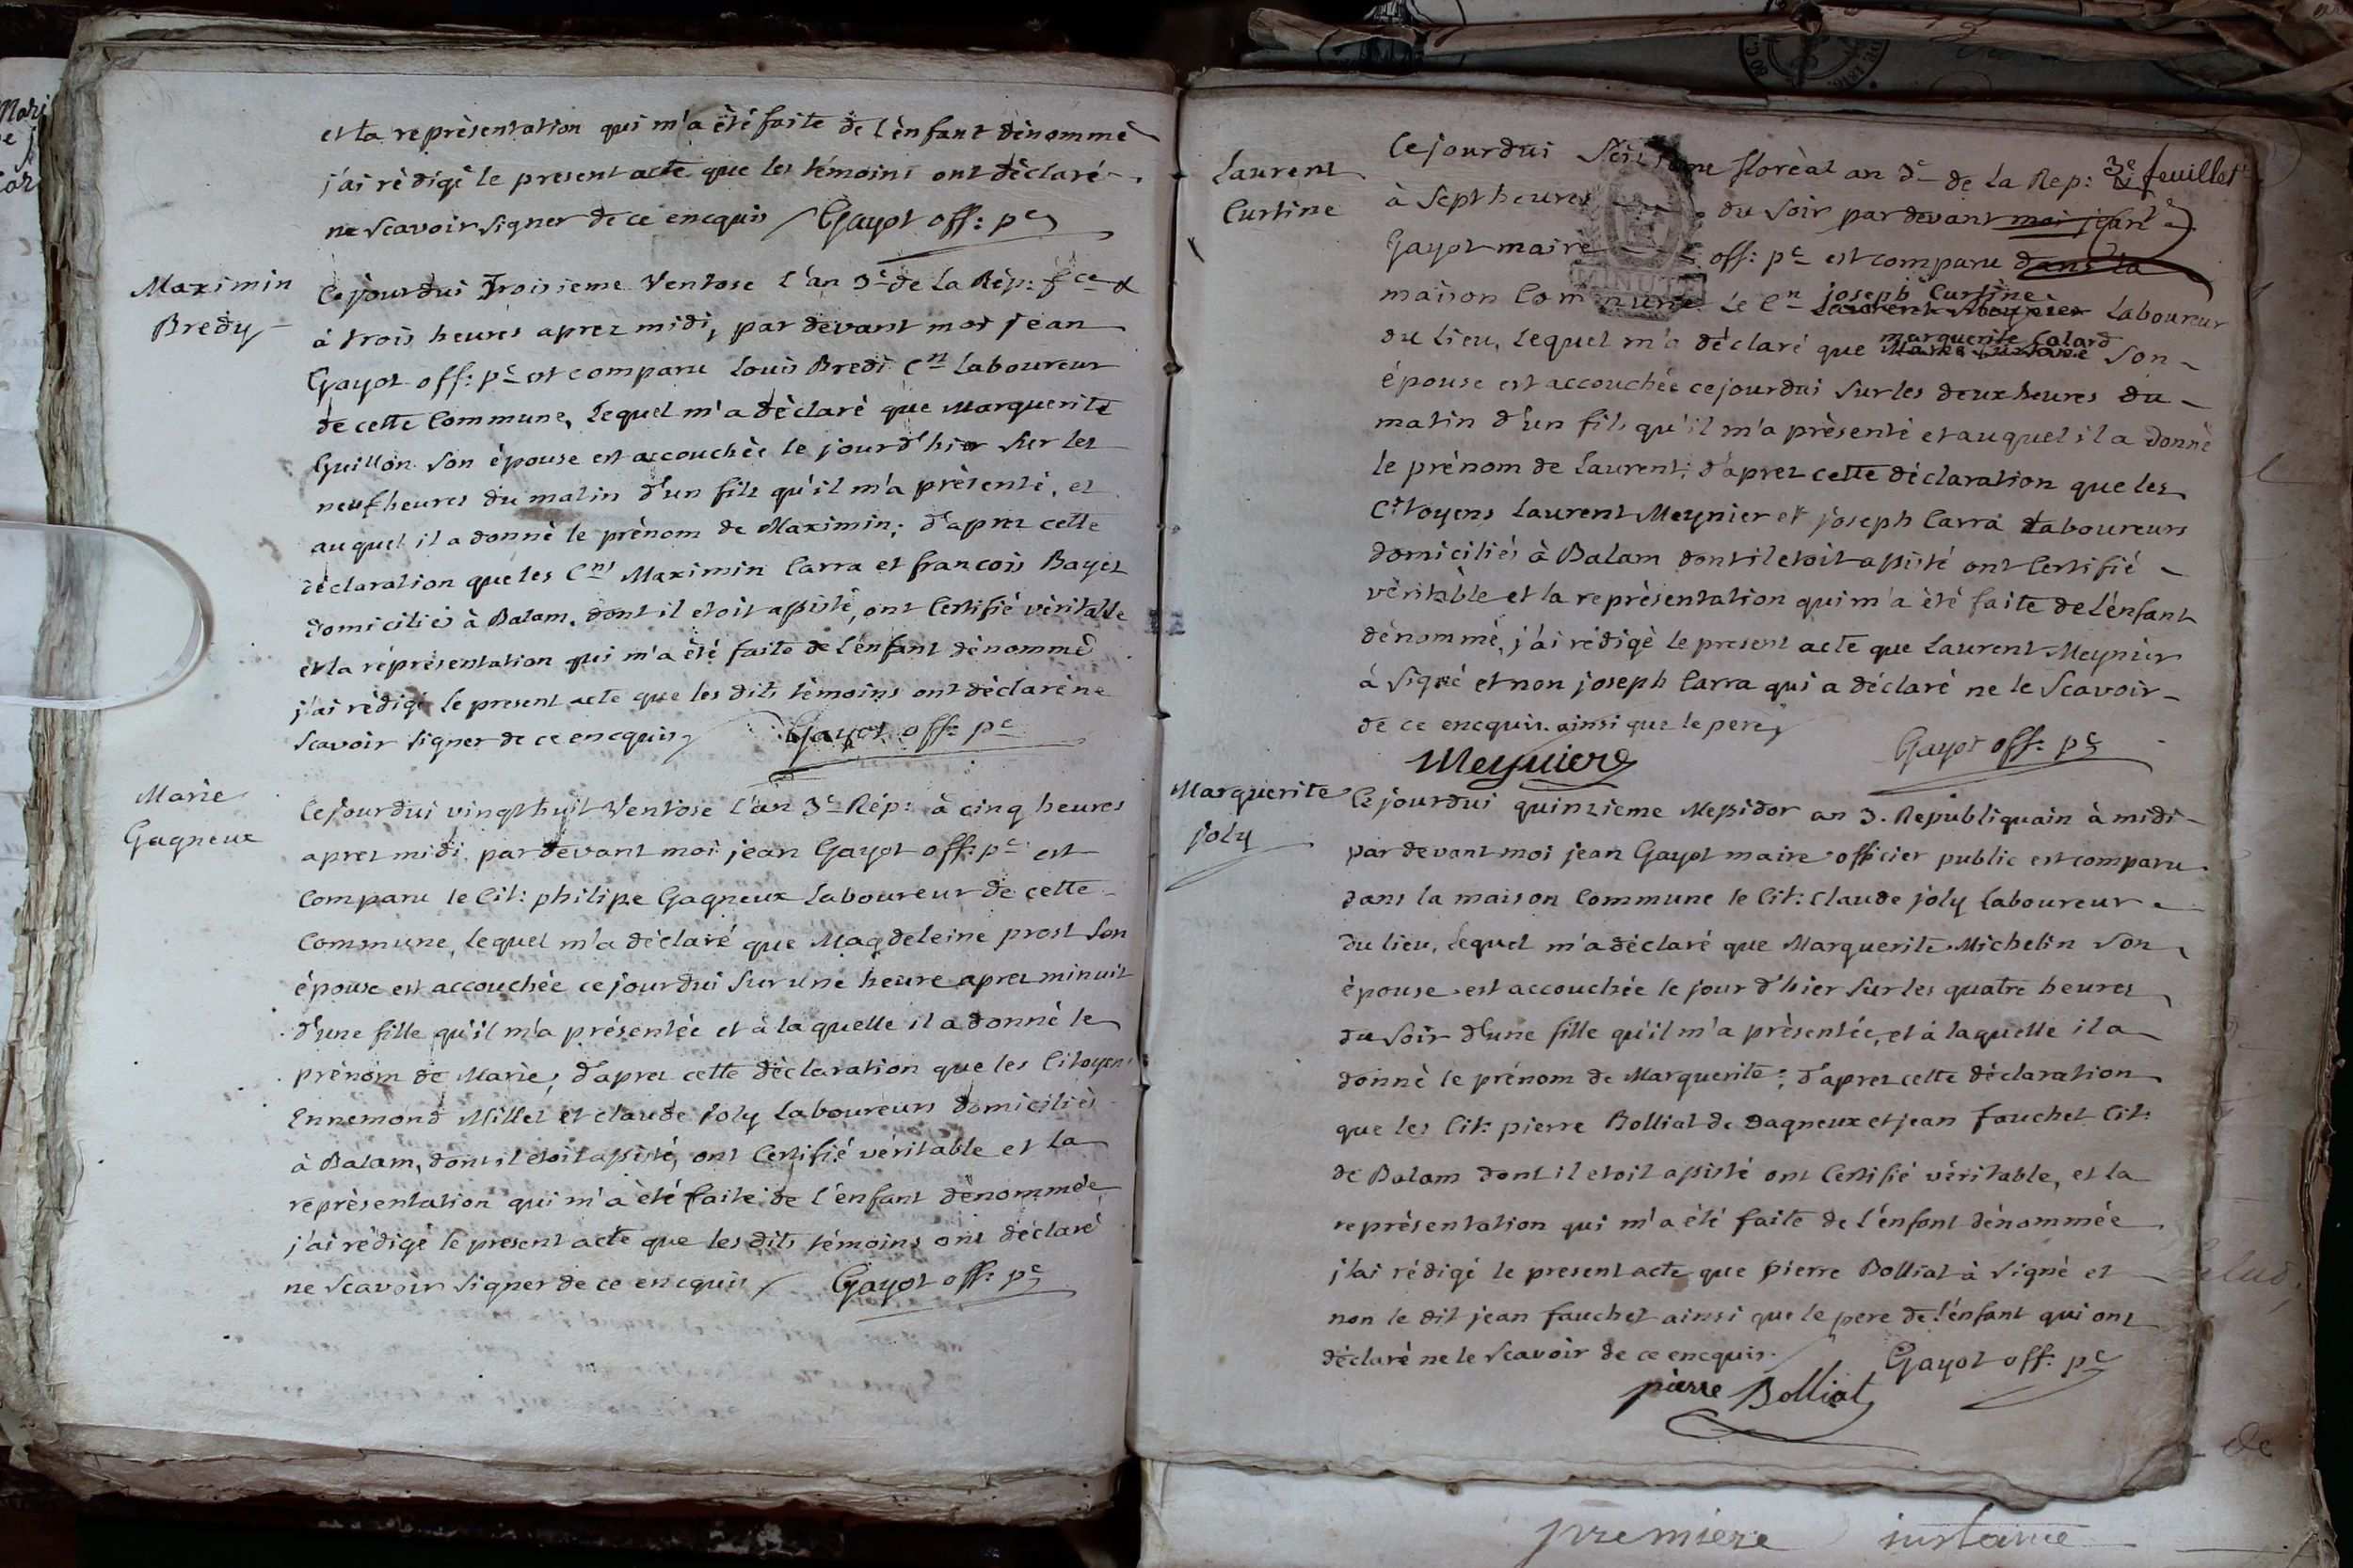 et la représentation qui m'a été faite de l'énfant dénommé
j'ai rédigé le present acte que les témoins ont déclaré
ne Scavoir signer de ce encquis Gayot off: pc
Maximin
Bredy
Cejourdui Troisieme Ventose l'an 3e de la Rép: fce
à trois heures aprez midi, par devant moi jean
Gayot off: pc est comparu Louis Bredi Cn Laboureur
de cette Commune, lequel m'a déclaré que Marguerite
Guillon Son épouse est accouchée le jour d'hier Sur les
neuf heures du matin d'un fils qu'il m'a présenté, et
auquel il a donné le prénom de Maximin; d'aprez cette
déclaration que les Cns Maximin Carra et francois Bayet
domiciliés à Balam, dont il etoit assisté, ont Certifié véritable
et la représentation qui m'a été faite de l'énfant dénommé
j'ai rédigé le present acte que les dits témoins ont déclaré ne
Scavoir signer de ce encquis Gayot off: pc
Marie
Gagneux
Cejourdui vingt huit Ventose l'an 3e Rép: à cinq heures
aprez midi par devant moi jean Gayot off: pc est
Comparu le Cit: philipe Gagneux Laboureur de cette
Commune, lequel m'a déclaré que Magdeleine prost Son
épouse est accouchée ce jourdui Sur une heure aprez minuit
d'une fille qu'il m'a présentée et à laquelle il a donné le
prénom de Marie; d'aprez cette déclaration que les Citoyens
Ennemond Millet et claude joly Laboureurs domiciliés
à Balam, dont il etoit assisté, ont Certifié véritable et la
représentation qui m'a été faite de l'énfant dénommée
j'ai rédigé le present acte que les dits témoins ont déclaré
ne Scavoir signer de ce encquis Gayot off: pc
3e feuillet
Laurent
Curtine
Cejourdui floréal an 3e de la Rep:
à Sept heures du Soir par devant moi jean
Gayot maire off: pc est comparu dans la
maison Commune le Cn joseph Curtine Laboureur
du lieu, lequel m'a déclaré que marguerite Calard Son
épouse est accouchée cejourdui Sur les deux heures du
matin d'un fils qu'il m'a présenté et auquel il a donné
le prénom de Laurent; d'aprez cette déclaration que les
Citoyens Laurent Meynier et joseph Carra Laboureurs
domiciliés à Balam dont il etoit assisté ont Certifié
véritable et la représentation qui m'a été faite de l'énfant
dénommé, j'ai rédigé le present acte que Laurent Meynier
à Signé et non joseph Carra qui a déclaré ne le Scavoir
de ce encquis ainsi que le pere
Meynier Gayot off: pc
Marguerite
joly
Cejourdui quinzieme Messidor an 3. Républiquain à midi
par devant moi jean Gayot maire officier public est comparu
dans la maison Commune le Cit: claude joly Laboureur
du lieu, lequel m'a déclaré que Marguerite Michelin Son
épouse est accouchée le jour d'hier Sur les quatre heures
du Soir d'une fille qu'il m'a présentée, et à laquelle il a
donné le prénom de Marguerite; d'aprez cette déclaration
que les Cit: pierre Bolliat de Dagneux et jean fauchet Cit:
de Balam dont il etoit assisté ont Certifié véritable, et la
représentation qui m'a été faite de l'énfant dénommée
j'ai rédigé le present acte que pierre Bolliat à Signé et
non le dit jean fauchet ainsi que le pere de l'énfant qui ont
déclaré ne le Scavoir de ce encquis. Gayot off: pc
pierre Bolliat
premiere instance